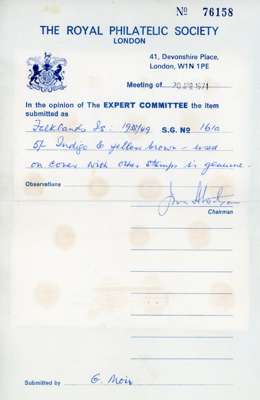 No 76158
THE ROYAL PHILATELIC SOCIETY
LONDON
41, Devonshire Place,
London, W1N 1PE
Meeting of 20 1971
In the opinion of The EXPERT COMMITTEE the item
submitted as
Falklands Is: 1938/49 S.G. No 161a
5/- Indigo & yellow brown - used
on cover with other stamps is genuine -
Observations
Chairman
Submitted by G. Moir